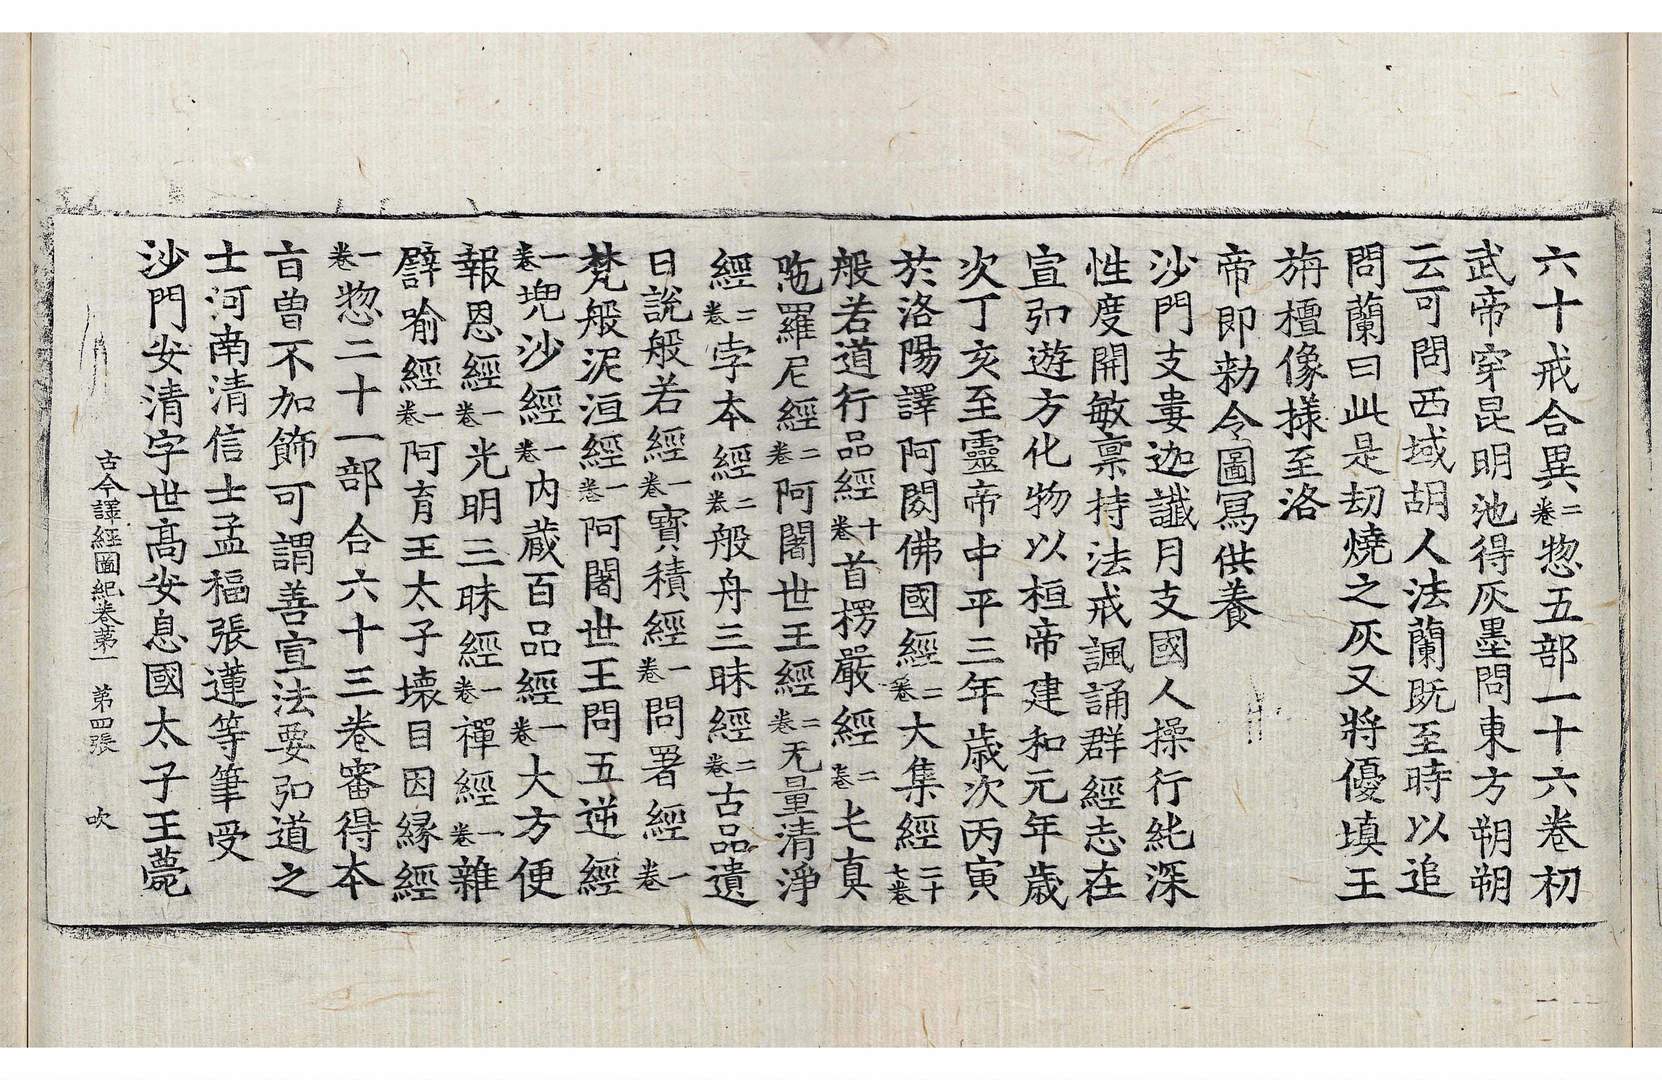 六十戒合異二卷惣五部一十六卷初
武帝穿昆明池得灰墨問東方朔朔
云可問西域胡人法蘭既至時以追
問蘭曰此是劫燒之灰又將優填王
旃檀像樣至洛
帝即勑令圖冩供養
沙門支婁迦讖月支國人操行純深
性度開敏稟持法戒諷誦群經志在
宣弘遊方化物以桓帝建和元年歲
次丁亥至靈帝中平三年歲次丙寅
於洛陽譯阿閦佛國經二卷大集經二十七卷
般若道行品經十卷首楞嚴經二卷七真
陁羅尼經二卷阿闍世王經二卷无量清淨
經二卷孛本經二卷般舟三昧經二卷古品遺
日說般若經一卷寶積經一卷問署經一卷
梵般泥洹經一卷阿闍世王問五逆經
一卷兜沙經一卷内蔵百品經一卷大方便
報恩經一卷光明三昧經一卷禪經一卷雜
譬喻經一卷阿育王太子壞目因緣經
一卷惣二十一部合六十三卷審得本
㫖曽不加飾可謂善宣法要弘道之
士河南清信士孟福張蓮等筆受
沙門安清字世髙安息國太子王薨
古今譯經圖紀卷第一 第四張 吹